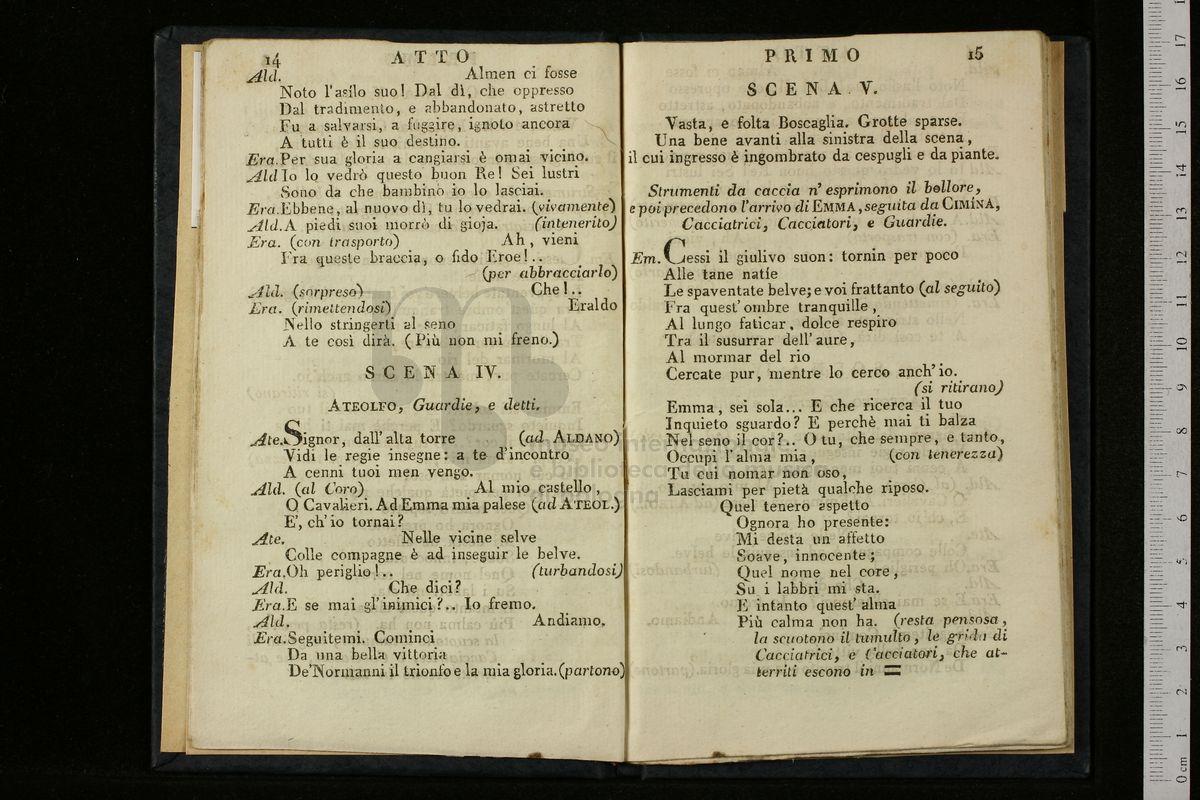 14 ATTO
Ald. Almen ci fosse
Noto l'asilo suo! Dal dì, che oppresso
Dal tradimento, e abbandonato, astretto
Fu a salvarsi, a fuggire, ignoto ancora
A tutti è il suo destino.
Era. Per sua gloria a cangiarsi è omai vicino.
Ald Io lo vedrò questo buon Re! Sei lustri
Sono da che bambino io lo lasciai.
Era. Ebbene, al nuovo dì, tu lo vedrai. (vivamente)
Ald. A piedi suoi morrò di gioja. (intenerito)
Era. (con trasporto) Ah, vieni
Fra queste braccia, o fido Eroe!..
(per abbracciarlo)
Ald. (sorpreso) Che!..
Era. (rimettendosi) Eraldo
Nello stringerti al seno
A te così dirà. (Più non mi freno.)
SCENA IV.
ATEOLFO, Guardie, e detti.
Ate. Signor, dall'alta torre (ad ALDANO)
Vidi le regie insegne: a te d'incontro
A cenni tuoi men vengo.
Ald. (al Coro) Al mio castello,
O Cavalieri. Ad Emma mia palese (ad ATEOL.)
E', ch'io tornai?
Ate. Nelle vicine selve
Colle compagne è ad inseguir le belve.
Era. Oh periglio!.. (turbandosi)
Ald. Che dici?
Era. E se mai gl'inimici?.. Io fremo.
Ald. Andiamo.
Era. Seguitemi. Cominci
Da una bella vittoria
De'Normanni il trionfo e la mia gloria. (partono)
PRIMO 15
SCENA V.
Vasta, e folta Boscaglia. Grotte sparse.
Una bene avanti alla sinistra della scena,
il cui ingresso è ingombrato da cespugli e da piante.
Strumenti da caccia n'esprimono il bollore,
e poi precedono l'arrivo di EMMA, seguita da CIMINA,
Cacciatrici, Cacciatori, e Guardie.
Em. Cessi il giulivo suon: tornin per poco
Alle tane natie
Le spaventate belve; e voi frattanto (al seguito)
Fra quest'ombre tranquille,
Al lungo faticar, dolce respiro
Tra il susurrar dell'aure,
Al mormar del rio
Cercate pur, mentre lo cerco anch'io.
(si ritirano)
Emma, sei sola... E che ricerca il tuo
Inquieto sguardo? E perchè mai ti balza
Nel seno il cor?.. O tu, che sempre, e tanto,
Occupi l'alma mia, (con tenerezza)
Tu cui nomar non oso,
Lasciami per pietà qualche riposo.
Quel tenero aspetto
Ognora ho presente:
Mi desta un affetto
Soave, innocente;
Quel nome nel core,
Su i labbri mi sta.
E intanto quest'alma
Più calma non ha. (resta pensosa,
la scuotono il tumulto, le grida di
Cacciatrici, e Cacciatori, che at-
territi escono in =